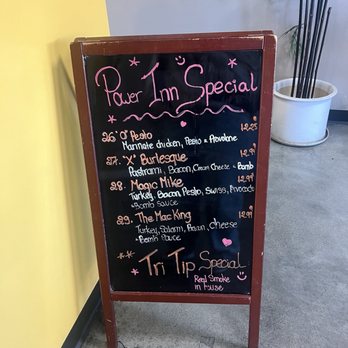 Power Inn Special
26. "O" Pesto 12.25
Marinate chicken, Pesto & Provolone
27. "X" Burlesque 12.99
Pastrami, Bacon, Cream Cheese & Bomb
28. Magic Mike 12.99
Turkey, Bacon, Pesto, Swiss, Avocado
& Bomb Sauce
29. The Mac King 12.99
Turkey, Salami, Bacon, Cheese
& Bomb Sauce
Tri Tip Special
Real Smoke
in House